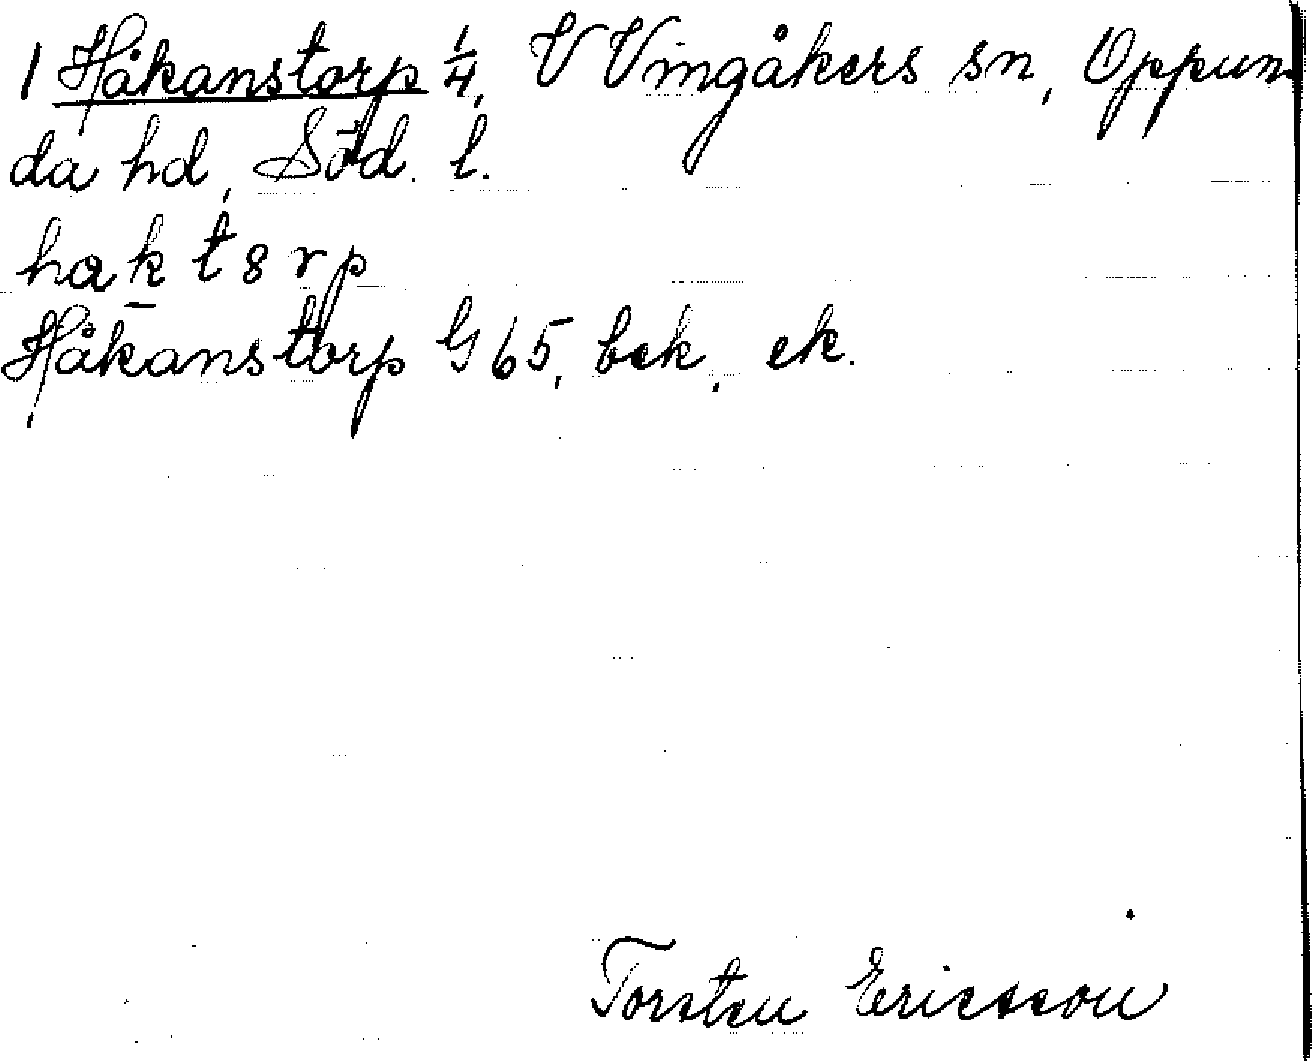 1 Håkanstorp 1/4, V Vingåkers sn, Oppun-
da hd, Söd. l.
hak t 8 r p
Håkanstorp G 65, bek, ek.
Torsten Ericsson